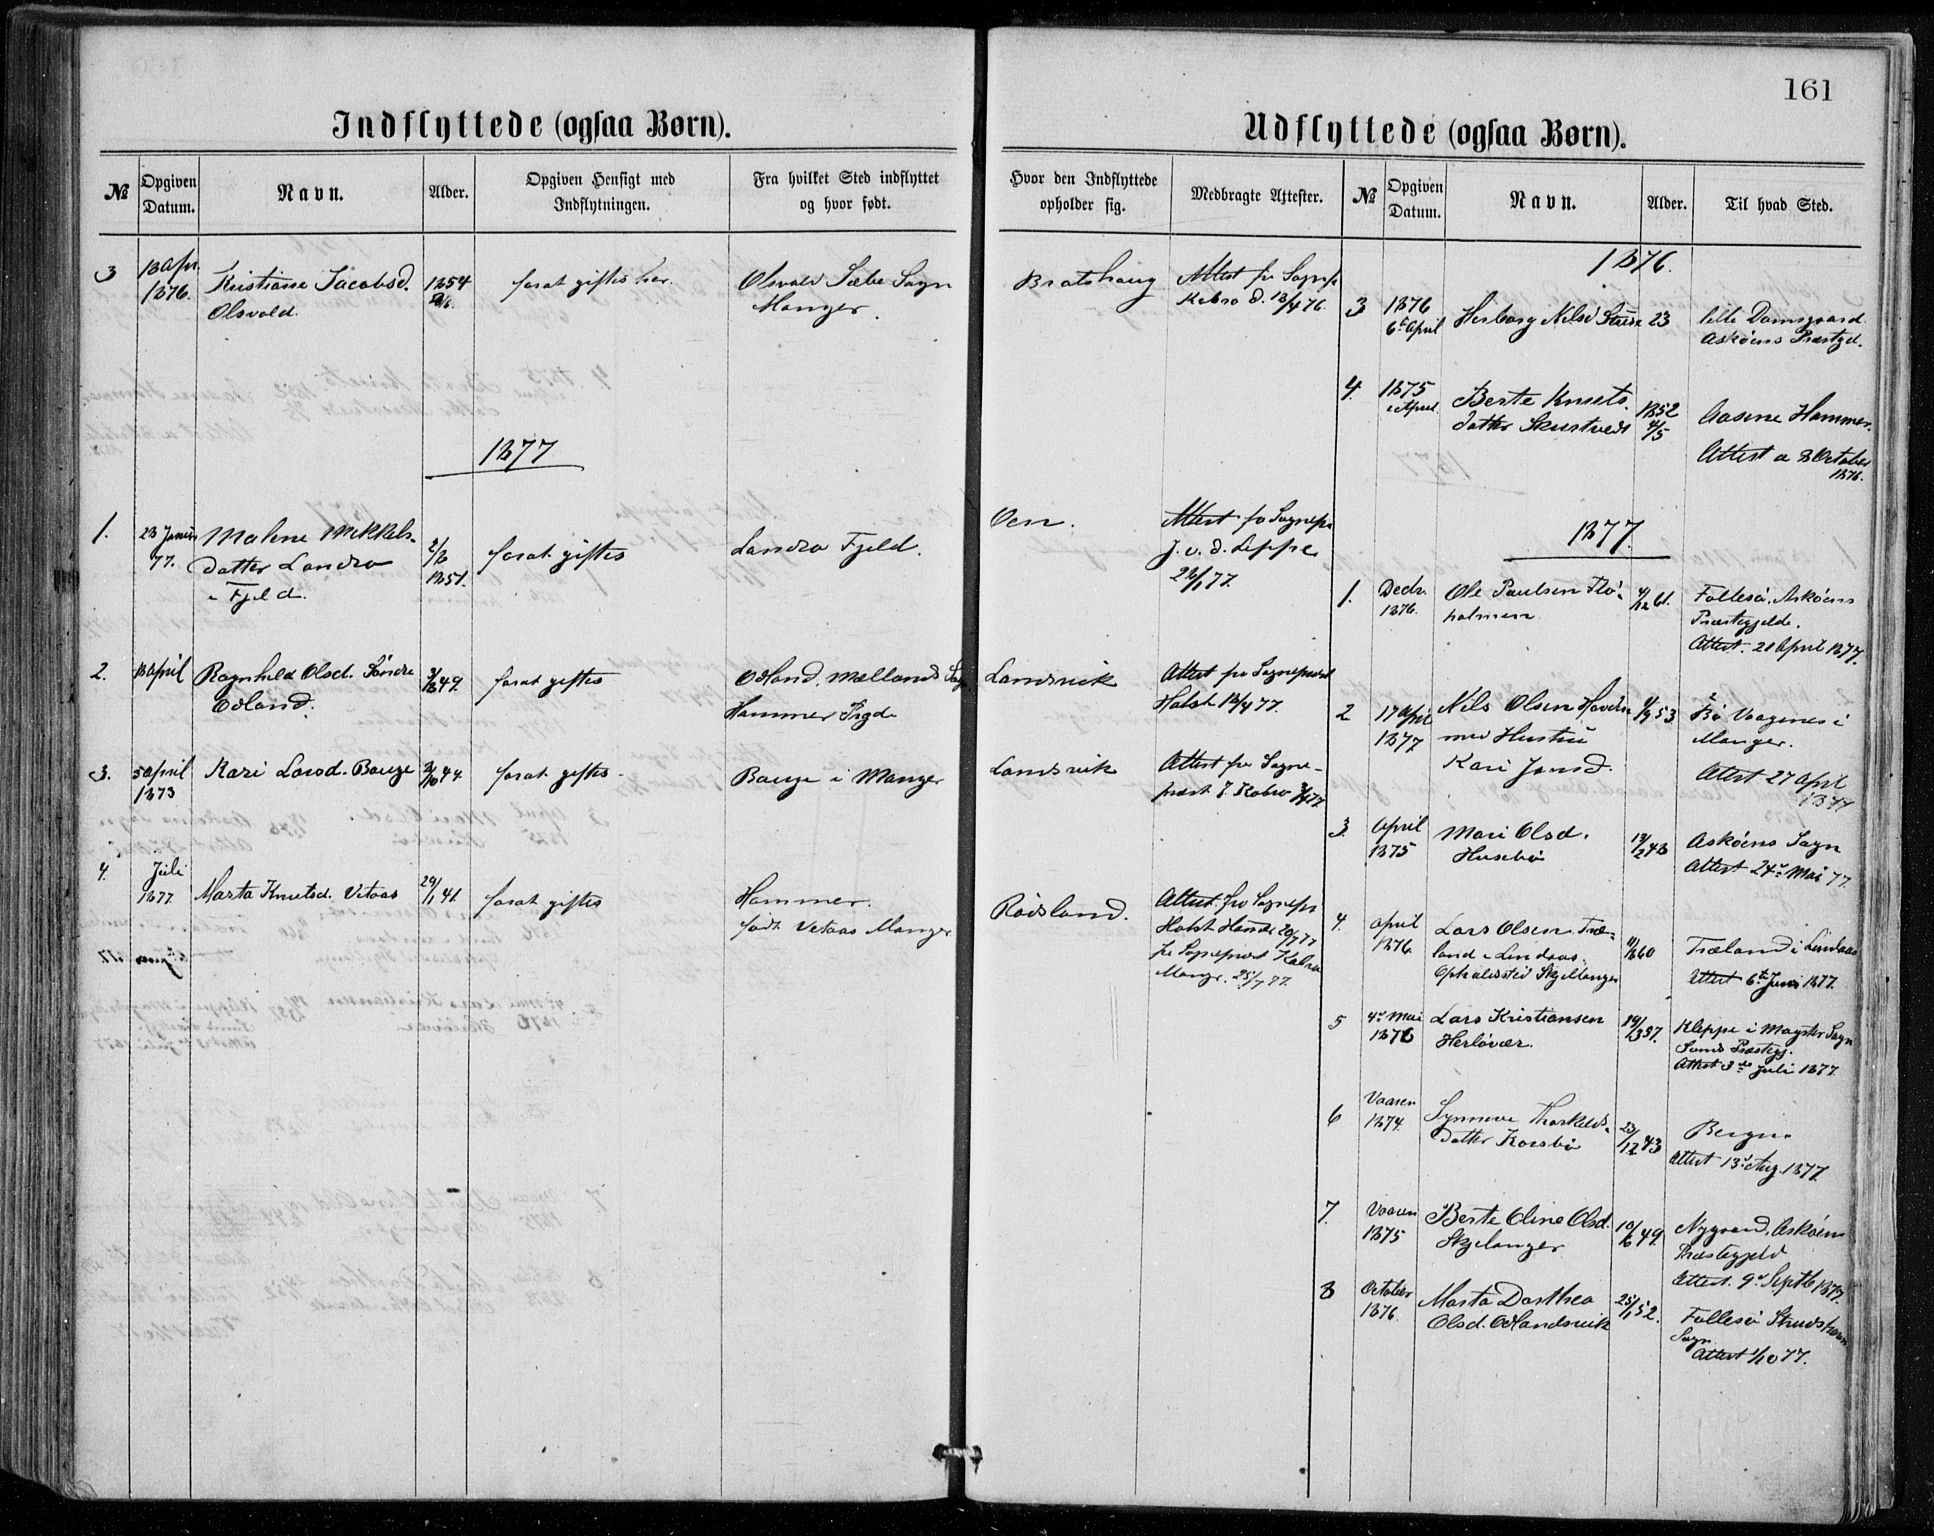 161
Indflyttede (ogsaa Børn).
№
Opgiven Datum.
Navn.
Alder.
Opgiven Hensigt med Indflytningen.
Fra hvilket Sted indflyttet og hvor født.
Hvor den Indflyttede opholder sig.
Medbragte Attester.
3
18 Apr. 1876.
Kristiane Jacobsd.
Olsvold.
1854
forat giftes her.
Olsvold Sæbø Sogn
Manger.
Bratshaug
Attest fr Sognepr
Kobro d. 18/4 76.
1877
1.
23 Januar 77.
Malene Mikkels-
datter Landro
i Fjeld.
2/8 1851.
forat giftes
Landro Fjeld.
Oen.
Attest fr Sognepr
J. v. d. Lippe
22/1 77.
2.
18 April
Ragnhild Olsd. Søndre
Edland.
49.
forat giftes
Odland, Mællands Sogn
Hammer Prgd
Landsvik
Attest fr Sogneprest
Holst 18/4 77.
3.
5 April 1873
Kari Larsd. Bauge
44
forat giftes
Bauge i Manger
Landsvik
Attest fr Sogne-
præst J. Kobro 77
4.
Juli 1877
Marta Knutsd. Vetaas
29/1 41.
forat giftes
Hammer.
født Vetaas Manger
Rødsland.
Attest fra Sognepr
Holst Hammer 20/7 77
fr Sogneprest Kobro
Manger. 25/7 77.
Udflyttede (ogsaa Børn).
№
Opgiven Datum.
Navn.
Alder.
Til hvad Sted.
1876.
3
1876 6te April
Herborg Nilsd Sture
23
lille Damsgaard
Askøens Præstgd.
4.
1875 i April
Berte Knuts
datter Skurtveit
1852 4/5
Aasene Hammer.
Attest a 8 October
1876.
1877.
1.
Decbr. 1876.
Ole Paulsen Flø-
holmen
4/12 61.
Follesø, Askøens
Præstegjelde.
Attest 28 April 1877.
2
17 April 1877
Nils Olsen Høvden
med Hustru
Kari Jansd.
53.
Bø Vaagenes i
Manger.
Attest 27 April
1877
3.
April 1875
Mari Olsd.
Husebø
13/2 48
Askøens Sogn
Attest 24de Mai 77.
4.
April 1876
Lars Olsen Træ-
land i Lindaas.
Opholdssted Skjellanger
60
Træland i Lindaas
Attest 6te Juni 1877.
5
4de Mai 1876
Lars Kristiansen
Herløvær.
14/3 57.
Kleppe i Møgster Sogn
Sunds Præstegj.
Attest 3de Juli 1877.
6
Vaaren 1874.
Synneve Thorkelds-
datter Korsbø
23/12 43
Bergen
Attest 13de Aug. 1877.
7.
Vaaren 1875
Berte Oline Olsd.
Skjelanger
10/6 49.
Nygaard, Askøens
Præstegjeld
Attest. 9de Septb 1877.
8
October 1876.
Marta Dorthea
Olsd. Odlandsvik
25/1 52.
Follesø Strudshavn
Sogn
Attest 1/10 77.